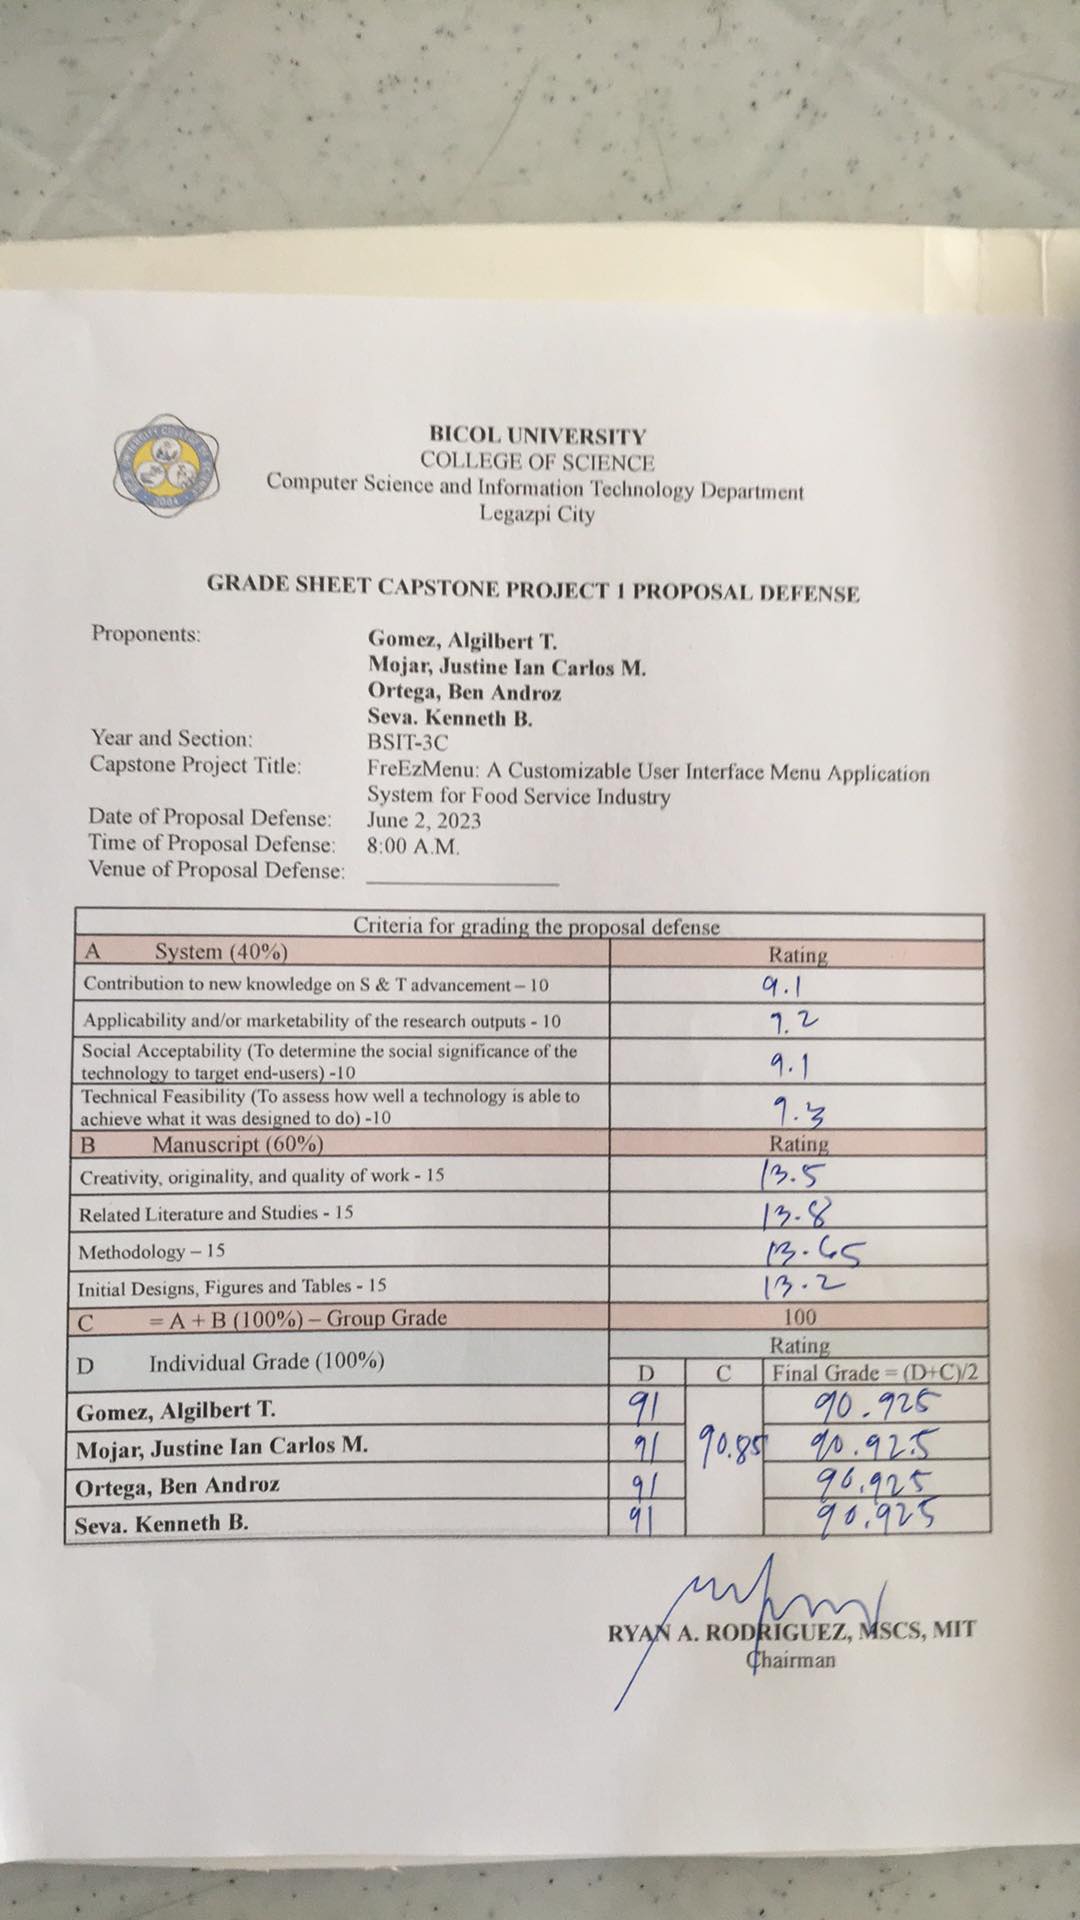 BICOL UNIVERSITY
COLLEGE OF SCIENCE
Computer Science and Information Technology Department
Legazpi City
GRADE SHEET CAPSTONE PROJECT 1 PROPOSAL DEFENSE
Proponents: Gomez, Algilbert T.
Mojar, Justine Ian Carlos M.
Ortega, Ben Androz
Seva. Kenneth B.
Year and Section: BSIT-3C
Capstone Project Title: FreEzMenu: A Customizable User Interface Menu Application
System for Food Service Industry
Date of Proposal Defense: June 2, 2023
Time of Proposal Defense: 8:00 A.M.
Venue of Proposal Defense:
Criteria for grading the proposal defense
A System (40%) Rating
Contribution to new knowledge on S & T advancement – 10 9.1
Applicability and/or marketability of the research outputs - 10 9.2
Social Acceptability (To determine the social significance of the
technology to target end-users) -10 9.1
Technical Feasibility (To assess how well a technology is able to
achieve what it was designed to do) -10 9.3
B Manuscript (60%) Rating
Creativity, originality, and quality of work - 15 13.5
Related Literature and Studies - 15 13.8
Methodology – 15 13.65
Initial Designs, Figures and Tables - 15 13.2
C = A + B (100%) – Group Grade 100
D Individual Grade (100%) Rating
D C Final Grade = (D+C)/2
Gomez, Algilbert T. 91 90.925
Mojar, Justine Ian Carlos M. 91 90.85 90.925
Ortega, Ben Androz 91 90.925
Seva. Kenneth B. 91 90.925
RYAN A. RODRIGUEZ, MSCS, MIT
Chairman